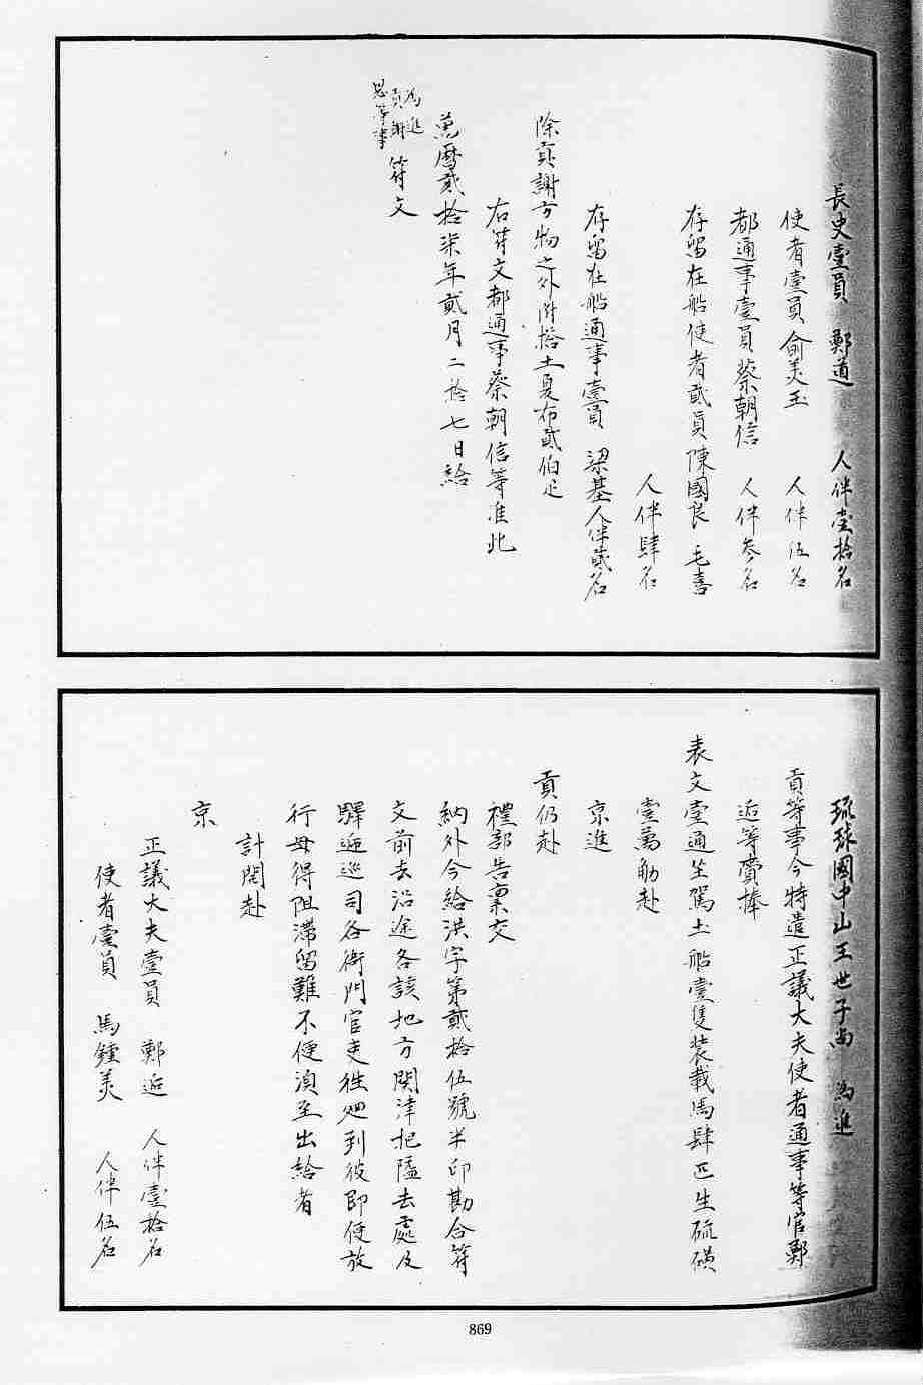 長史壹員　鄭道　人伴壹拾名
使者壹員俞美玉　人伴伍名
都通事壹員蔡朝信　人伴叁名
存留在船使者貳員陳國良　毛喜
人伴肆名
存留在船通事壹員　梁基人伴貳名
除貢謝方物之外附搭土夏布貳伯疋
右符文都通事蔡朝信等准此
萬曆貳拾柒年貳月二拾七日給
為進
貢謝
恩等事
符文
琉球國中山王世子尚　為進
貢等事今特遣正議大夫使者通事等官鄭
迵等齎捧
表文壹通坐駕土船壹隻裝載馬肆匹生硫磺
壹萬觔赴
京進
貢仍赴
禮部告稟交
納外今給洪字第貳拾伍號半印勘合符
文前去沿途各該地方關津把隘去處及
驛遞巡司各衙門官吏往廻到彼即便放
行毋得阻滯留難不便須至出給者
計開赴
京
正議大夫壹員　鄭迵　人伴壹拾名
使者壹員　馬鍾美　人伴伍名
869